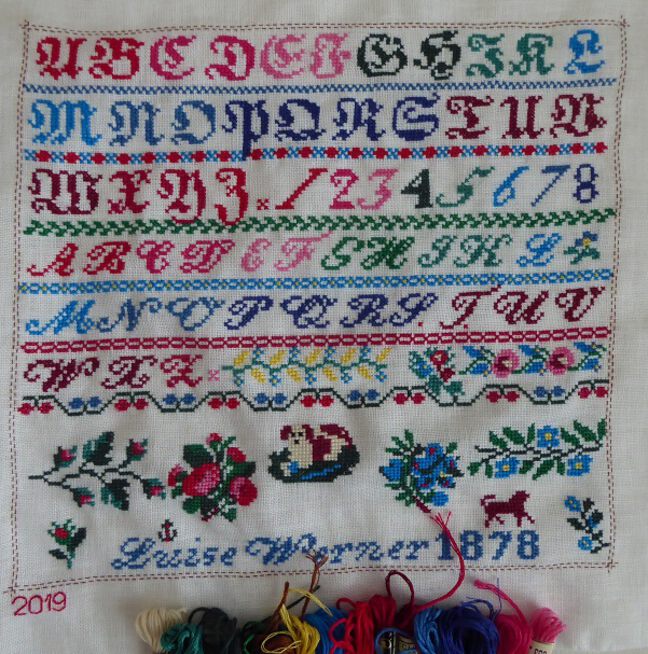 A B C D E F G H I K L
M N O P Q R S T U V
W X Y Z . 1 2 3 4 5 6 7 8
A B C D E F G H I K L
M N O P Q R S. T U V
W X Z.
Luise Werner 1878
2019